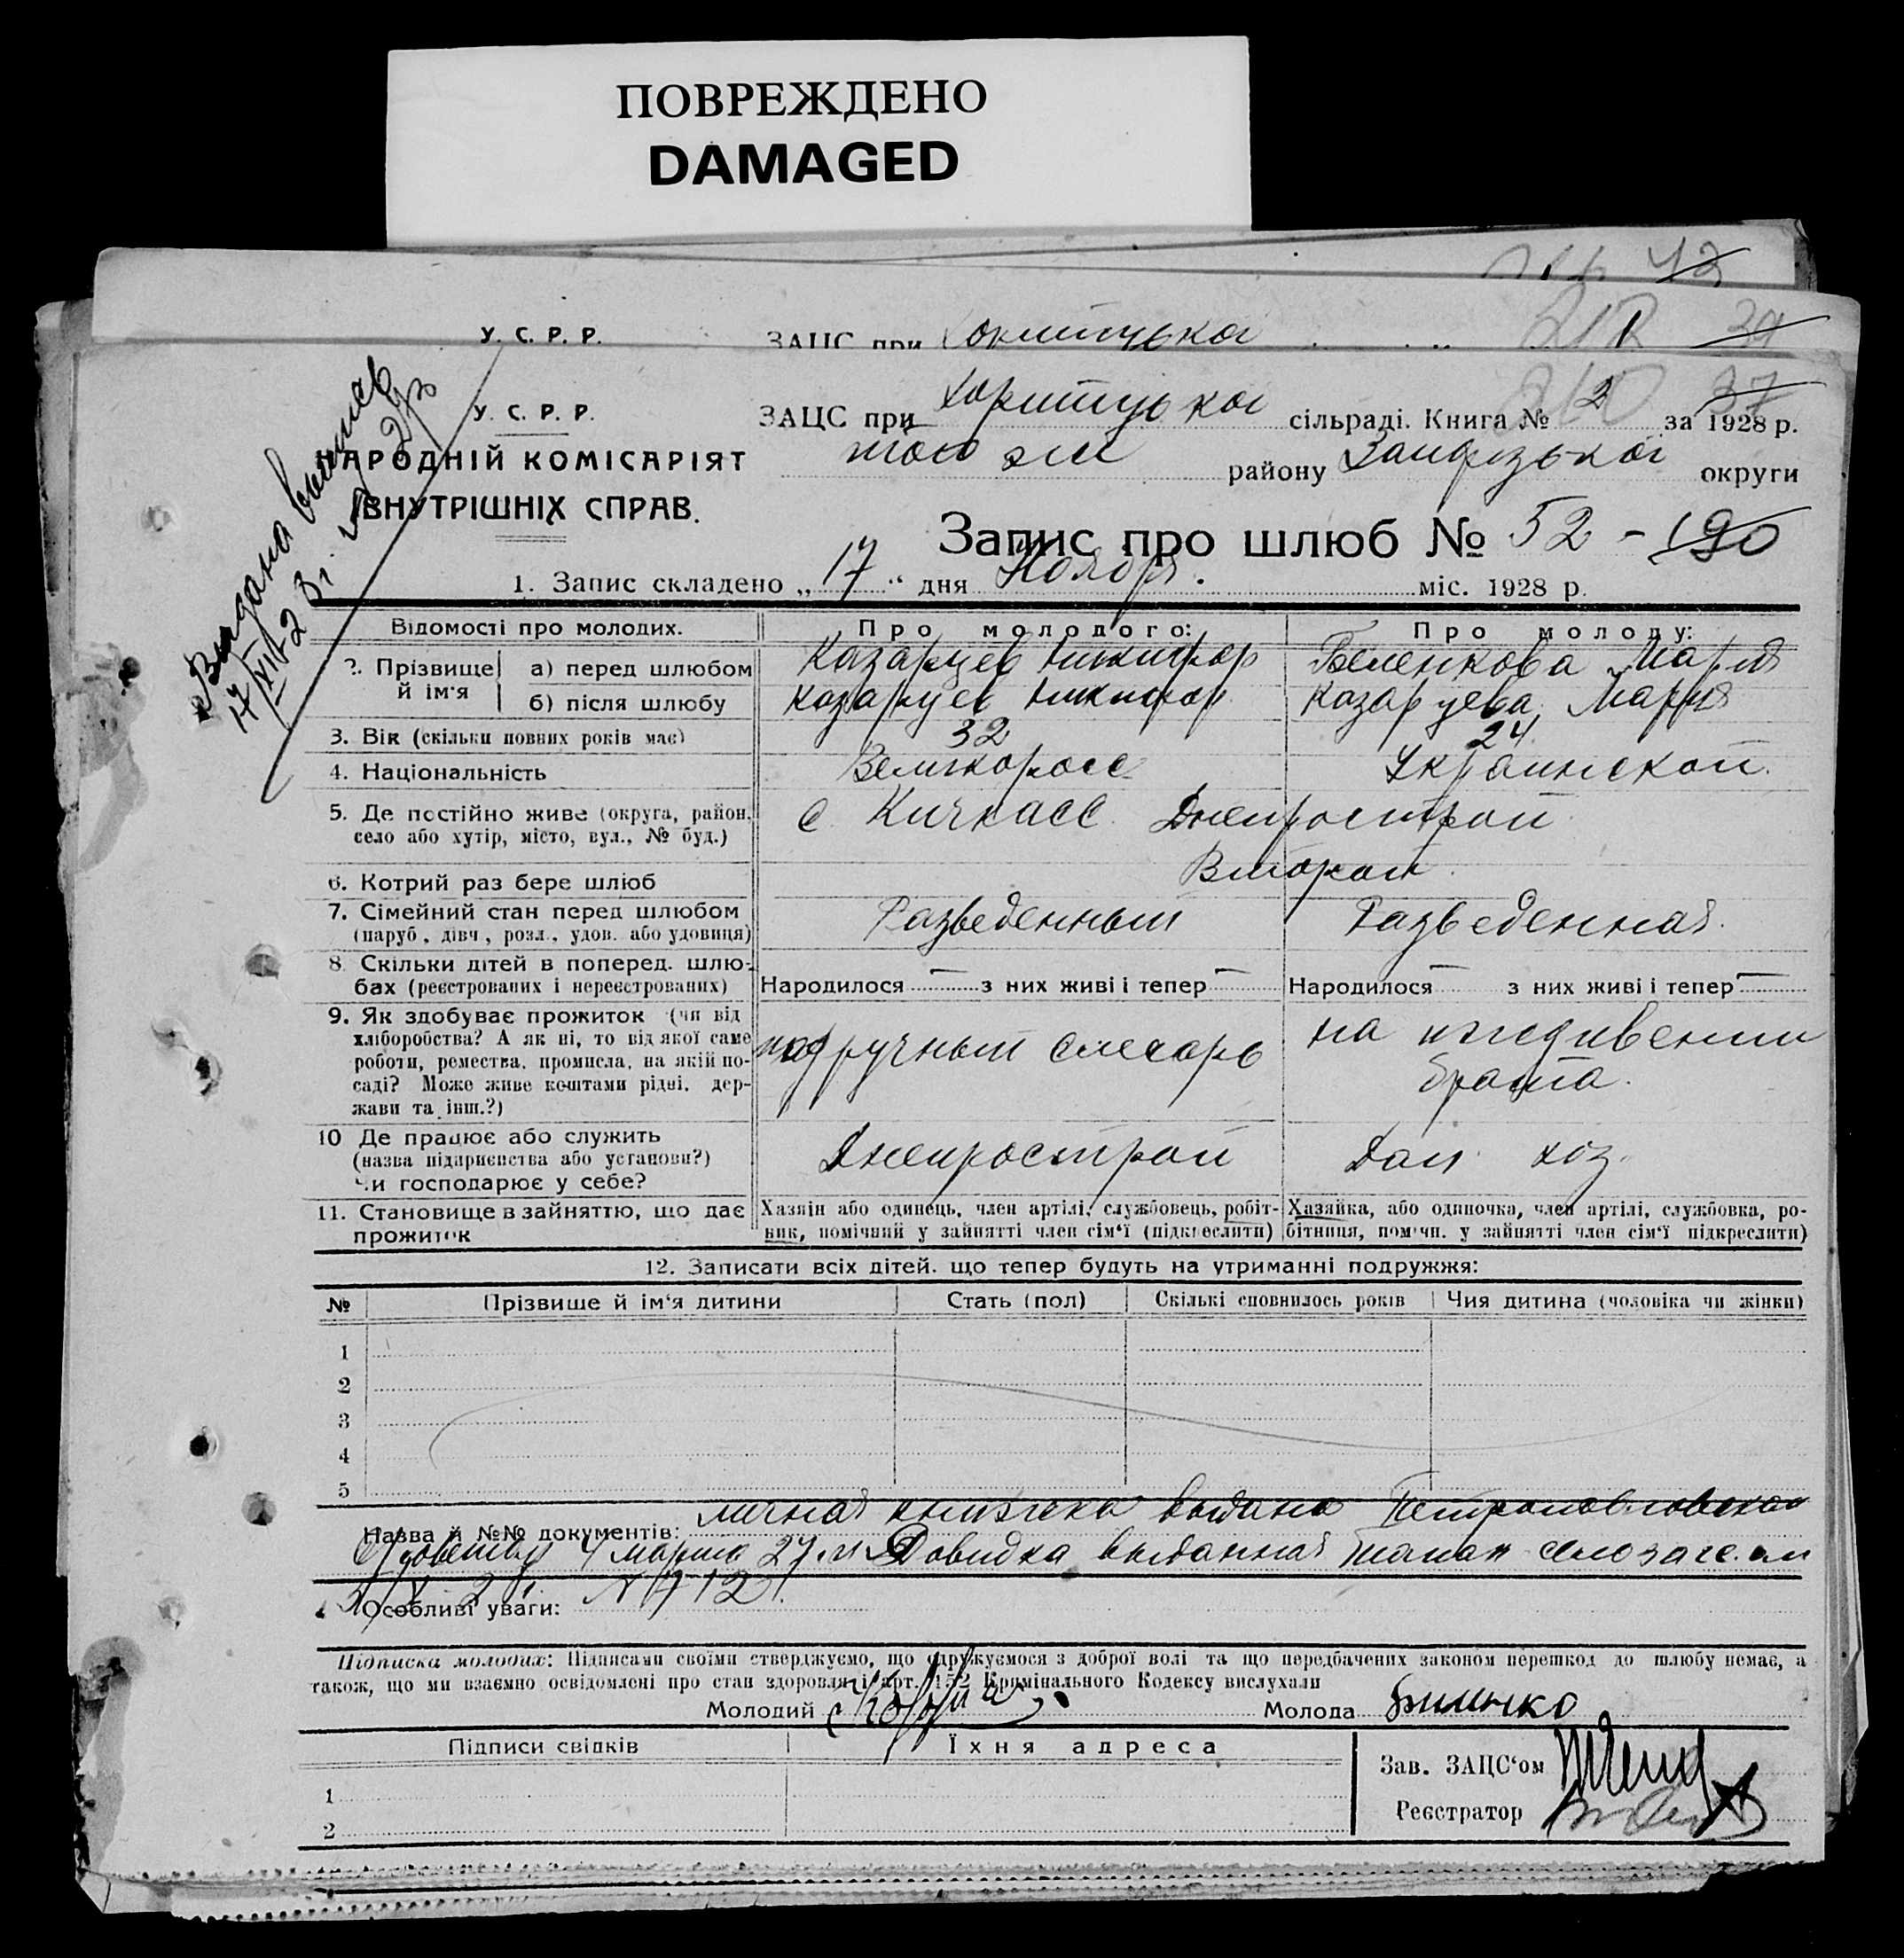 ПОВРЕЖДЕНО
DAMAGED
42
У. С. Р. Р.
ЗАЦС при
212 39
У. С. Р. Р.
НАРОДНІЙ КОМІСАРІЯТ
ВНУТРІШНІХ СПРАВ.
Видана выпись
17/XI-28г.
ЗАЦС при Хортицької сільраді. Книга № 2 за 1928 р.
210 37
тою же району Запорізької округи
Запис про шлюб № 52 - 190
1. Запис складено „17“ дня Ноября. міс. 1928 р.
Відомості про молодих. Про молодого: Про молоду:
2. Прізвище й ім'я а) перед шлюбом Казарцев Никифор Беленкова Мария
б) після шлюбу Казарцев Никифор Казарцева Мария
3. Вік (скільки повних років має) 32 24
4. Національність Великоросс Украинской
5. Де постійно живе (округа, район, село або хутір, місто, вул., № буд.) с. Кичкасс Днепрострой
6. Котрий раз бере шлюб Второй
7. Сімейний стан перед шлюбом Разведенный Разведенная.
(паруб., дівч., розл., удов. або удовиця)
8. Скільки дітей в поперед. шлю-
бах (реєстрованих і нереєстрованих) Народилося — з них живі і тепер — Народилося — з них живі і тепер —
9. Як здобуває прожиток (чи від
хліборобства? А як ні, то від якої саме
роботи, ремества, промисла, на якій по-
саді? Може живе коштами рідні, дер-
жави та інш.?)
подручный слесарь
на иждивении
брата.
10 Де працює або служить
(назва підприємства або установи?)
Чи господарює у себе?
Днепрострой Дом. хоз.
11. Становище в зайняттю, що дає
прожиток
Хазяїн або одинець, член артілі, службовець, робіт-
ник, помічний у зайнятті член сім'ї (підкреслити)
Хазяйка, або одиночка, член артілі, службовка, ро-
бітниця, помічн. у зайнятті член сім'ї підкреслити)
12. Записати всіх дітей, що тепер будуть на утриманні подружжя:
№ Прізвише й ім'я дитини Стать (пол) Скількі сповнилось років Чия дитина (чоловіка чи жінки)
1
2
3
4
5
Назва й №№ документів: личная книжка выдана Петропавловской
4 марта 27. и Довидка выданная
Особливі уваги: № 712.
Підписка молодих: Підписами своїми стверджуємо, що одружуємося з доброї волі та що передбачених законом перешкод до шлюбу немає, а
також, що ми взаємно освідомлені про стан здоровля і арт. 152 Кримінального Кодексу вислухали
Молодий Молода Билинко
Підписи свідків Їхня адреса
1
2
Зав. ЗАЦС'ом
Реєстратор